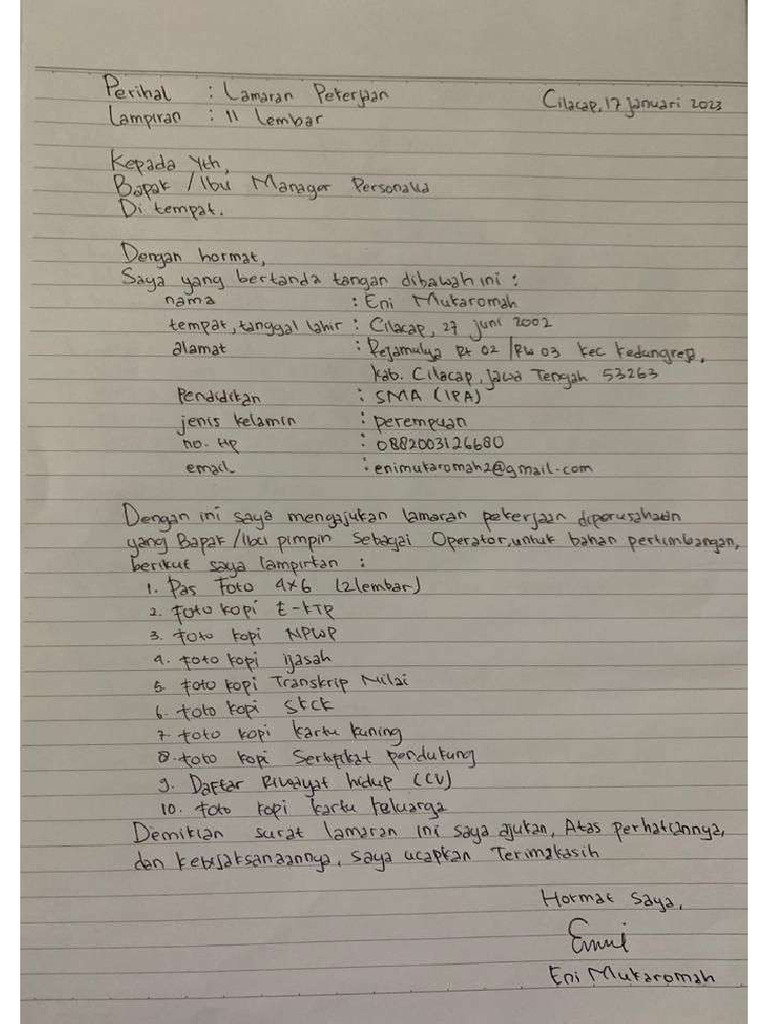 Perihal : Lamaran Pekerjaan Cilacap, 17 Januari 2023
Lampiran : 11 lembar
Kepada Yth,
Bapak /Ibu Manager Personalia
Di tempat.
Dengan hormat,
Saya yang bertanda tangan dibawah ini :
nama : Eni Mukaromah
tempat, tanggal lahir : Cilacap, 27 juni 2002
alamat : Rejamulya Rt 02 /RW 03 Kec Kedungreja,
Kab. Cilacap, Jawa Tengah 53263
Pendidikan : SMA (IPA)
jenis kelamin : perempuan
no. Hp : 0882003126680
email : enimukaromah2@gmail.com
Dengan ini saya mengajukan lamaran pekerjaan diperusahaan
yang Bapak /Ibu pimpin sebagai Operator, untuk bahan pertimbangan,
berikut saya lampirkan :
1. Pas Foto 4x6 (2lembar)
2. Foto kopi E-KTP
3. Foto kopi NPWP
4. Foto kopi ijasah
5. Foto kopi Transkrip Nilai
6. Foto kopi SKCK
7. Foto kopi kartu kuning
8. foto kopi Sertifikat pendukung
9. Daftar Riwayat hidup (CV)
10. Foto kopi kartu keluarga
Demikian surat lamaran ini saya ajukan, Atas perhatiannya,
dan kebijaksanaannya, saya ucapkan Terimakasih
Hormat saya,
Enni
Eni Mukaromah